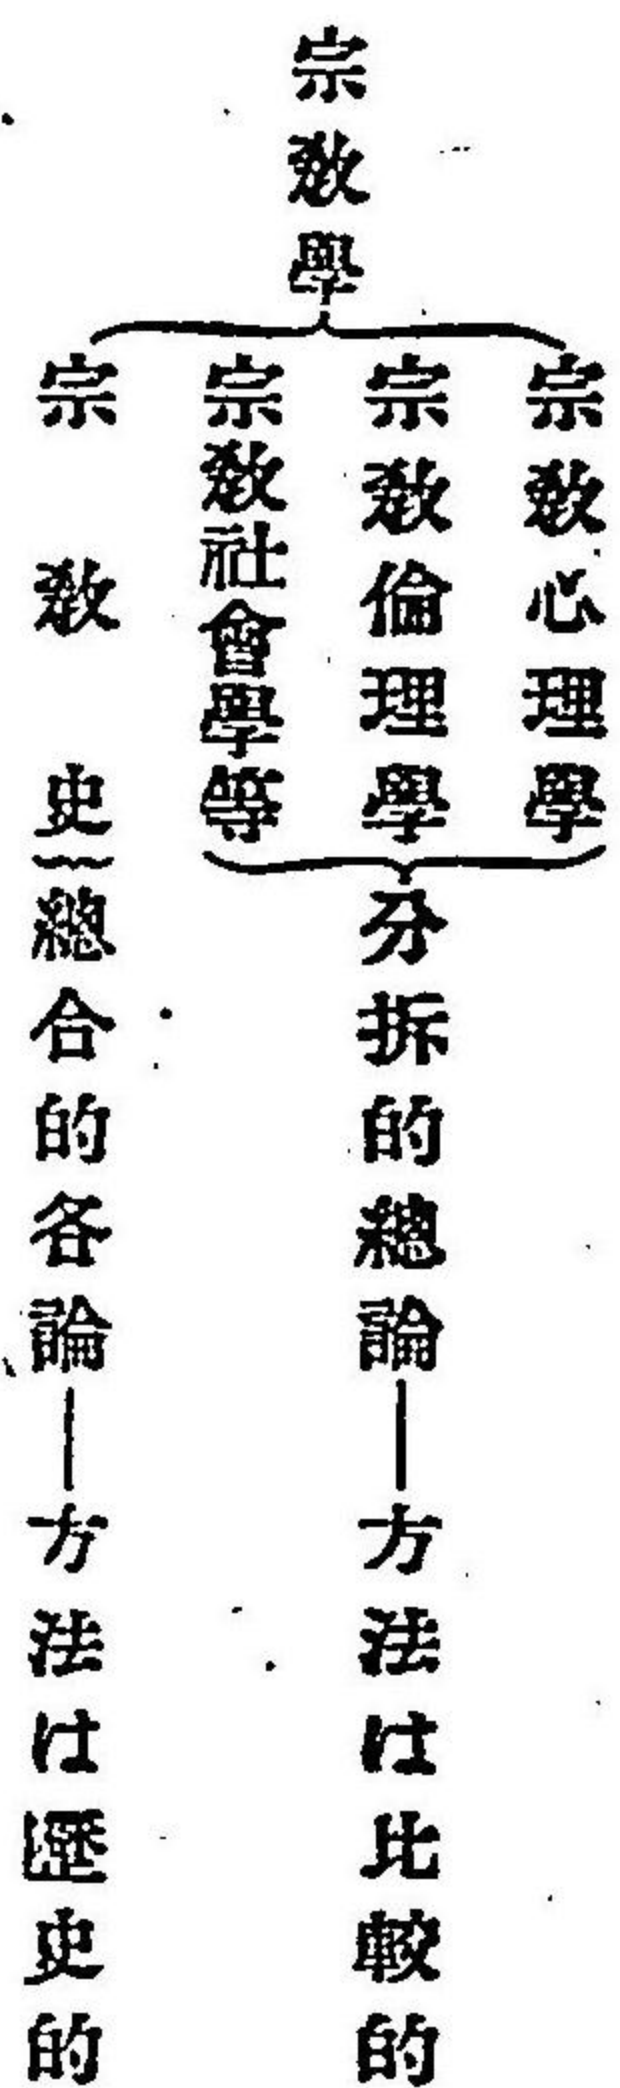 宗敎學
宗敎心理學
宗敎倫理學
宗敎社會學等
分拆的總論——方法は比較的
宗敎史
總合的各論——方法は歷史的